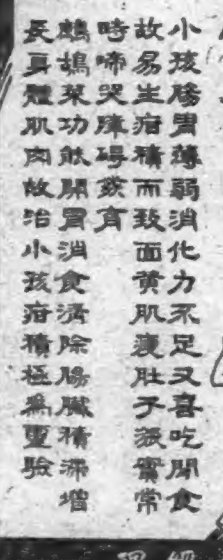 小孩腸胃薄弱消化力不足又喜吃閒食
故易生疳積而致面黄肌瘦肚子脹實常
時啼哭障碍發育
鷓鴣菜功能開胃消食清除腸臟積滯增
長身體肌肉故治小孩疳積極為靈驗